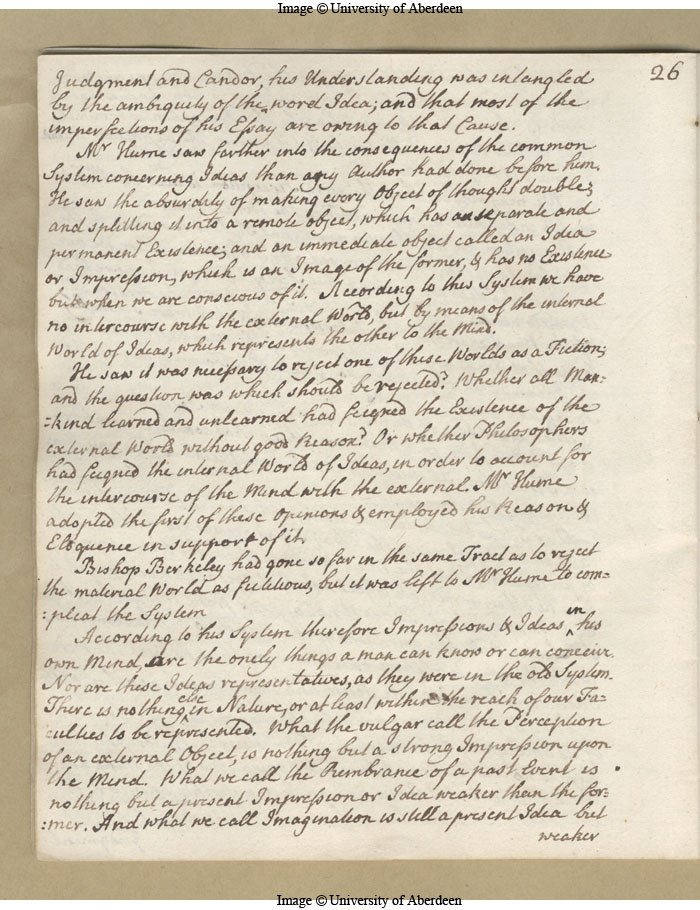 Image © University of Aberdeen
26
Judgment and Candor, his Understanding was intangled
by the ambiguity of the word Idea; and that most of the
imperfections of his Essay are owing to that Cause.
Mr Hume saw farther into the consequences of the common
System concerning Ideas than any Author had done before him.
He saw the absurdity of making every Object of thought double,
and splitting it into a remote object, which has a separate and
permanent Existence, and an immediate object called an Idea
or Impression, which is an Image of the former, & has no Existence
but when we are conscious of it. According to this System we have
no intercourse with the external World, but by means of the internal
World of Ideas, which represents the other to the Mind.
He saw it was necessary to reject one of these Worlds as a Fiction;
and the question was which should be rejected? Whether all Man=
=kind learned and unlearned had feigned the Existence of the
external World without good Reason? Or whether Philosophers
had feigned the internal World of Ideas, in order to account for
the intercourse of the Mind with the external. Mr Hume
adopted the first of these Opinions & employed his Reason &
Eloquence in support of it.
Bishop Berkeley had gone so far in the same Tract as to reject
the material World as fictitious, but it was left to Mr Hume to com=
=pleat the System
According to his System therefore Impressions & Ideas in his
own Mind are the onely things a man can know or can conceive.
Nor are these Ideas representatives, as they were in the old System.
There is nothing else in Nature, or at least within the reach of our Fa=
culties to be represented. What the vulgar call the Perception
of an external Object, is nothing but a strong Impression upon
the Mind. What we call the Rembrance of a past Event is
nothing but a present Impression or Idea weaker than the for=
=mer. And what we call Imagination is still a present Idea but
weaker
Image © University of Aberdeen